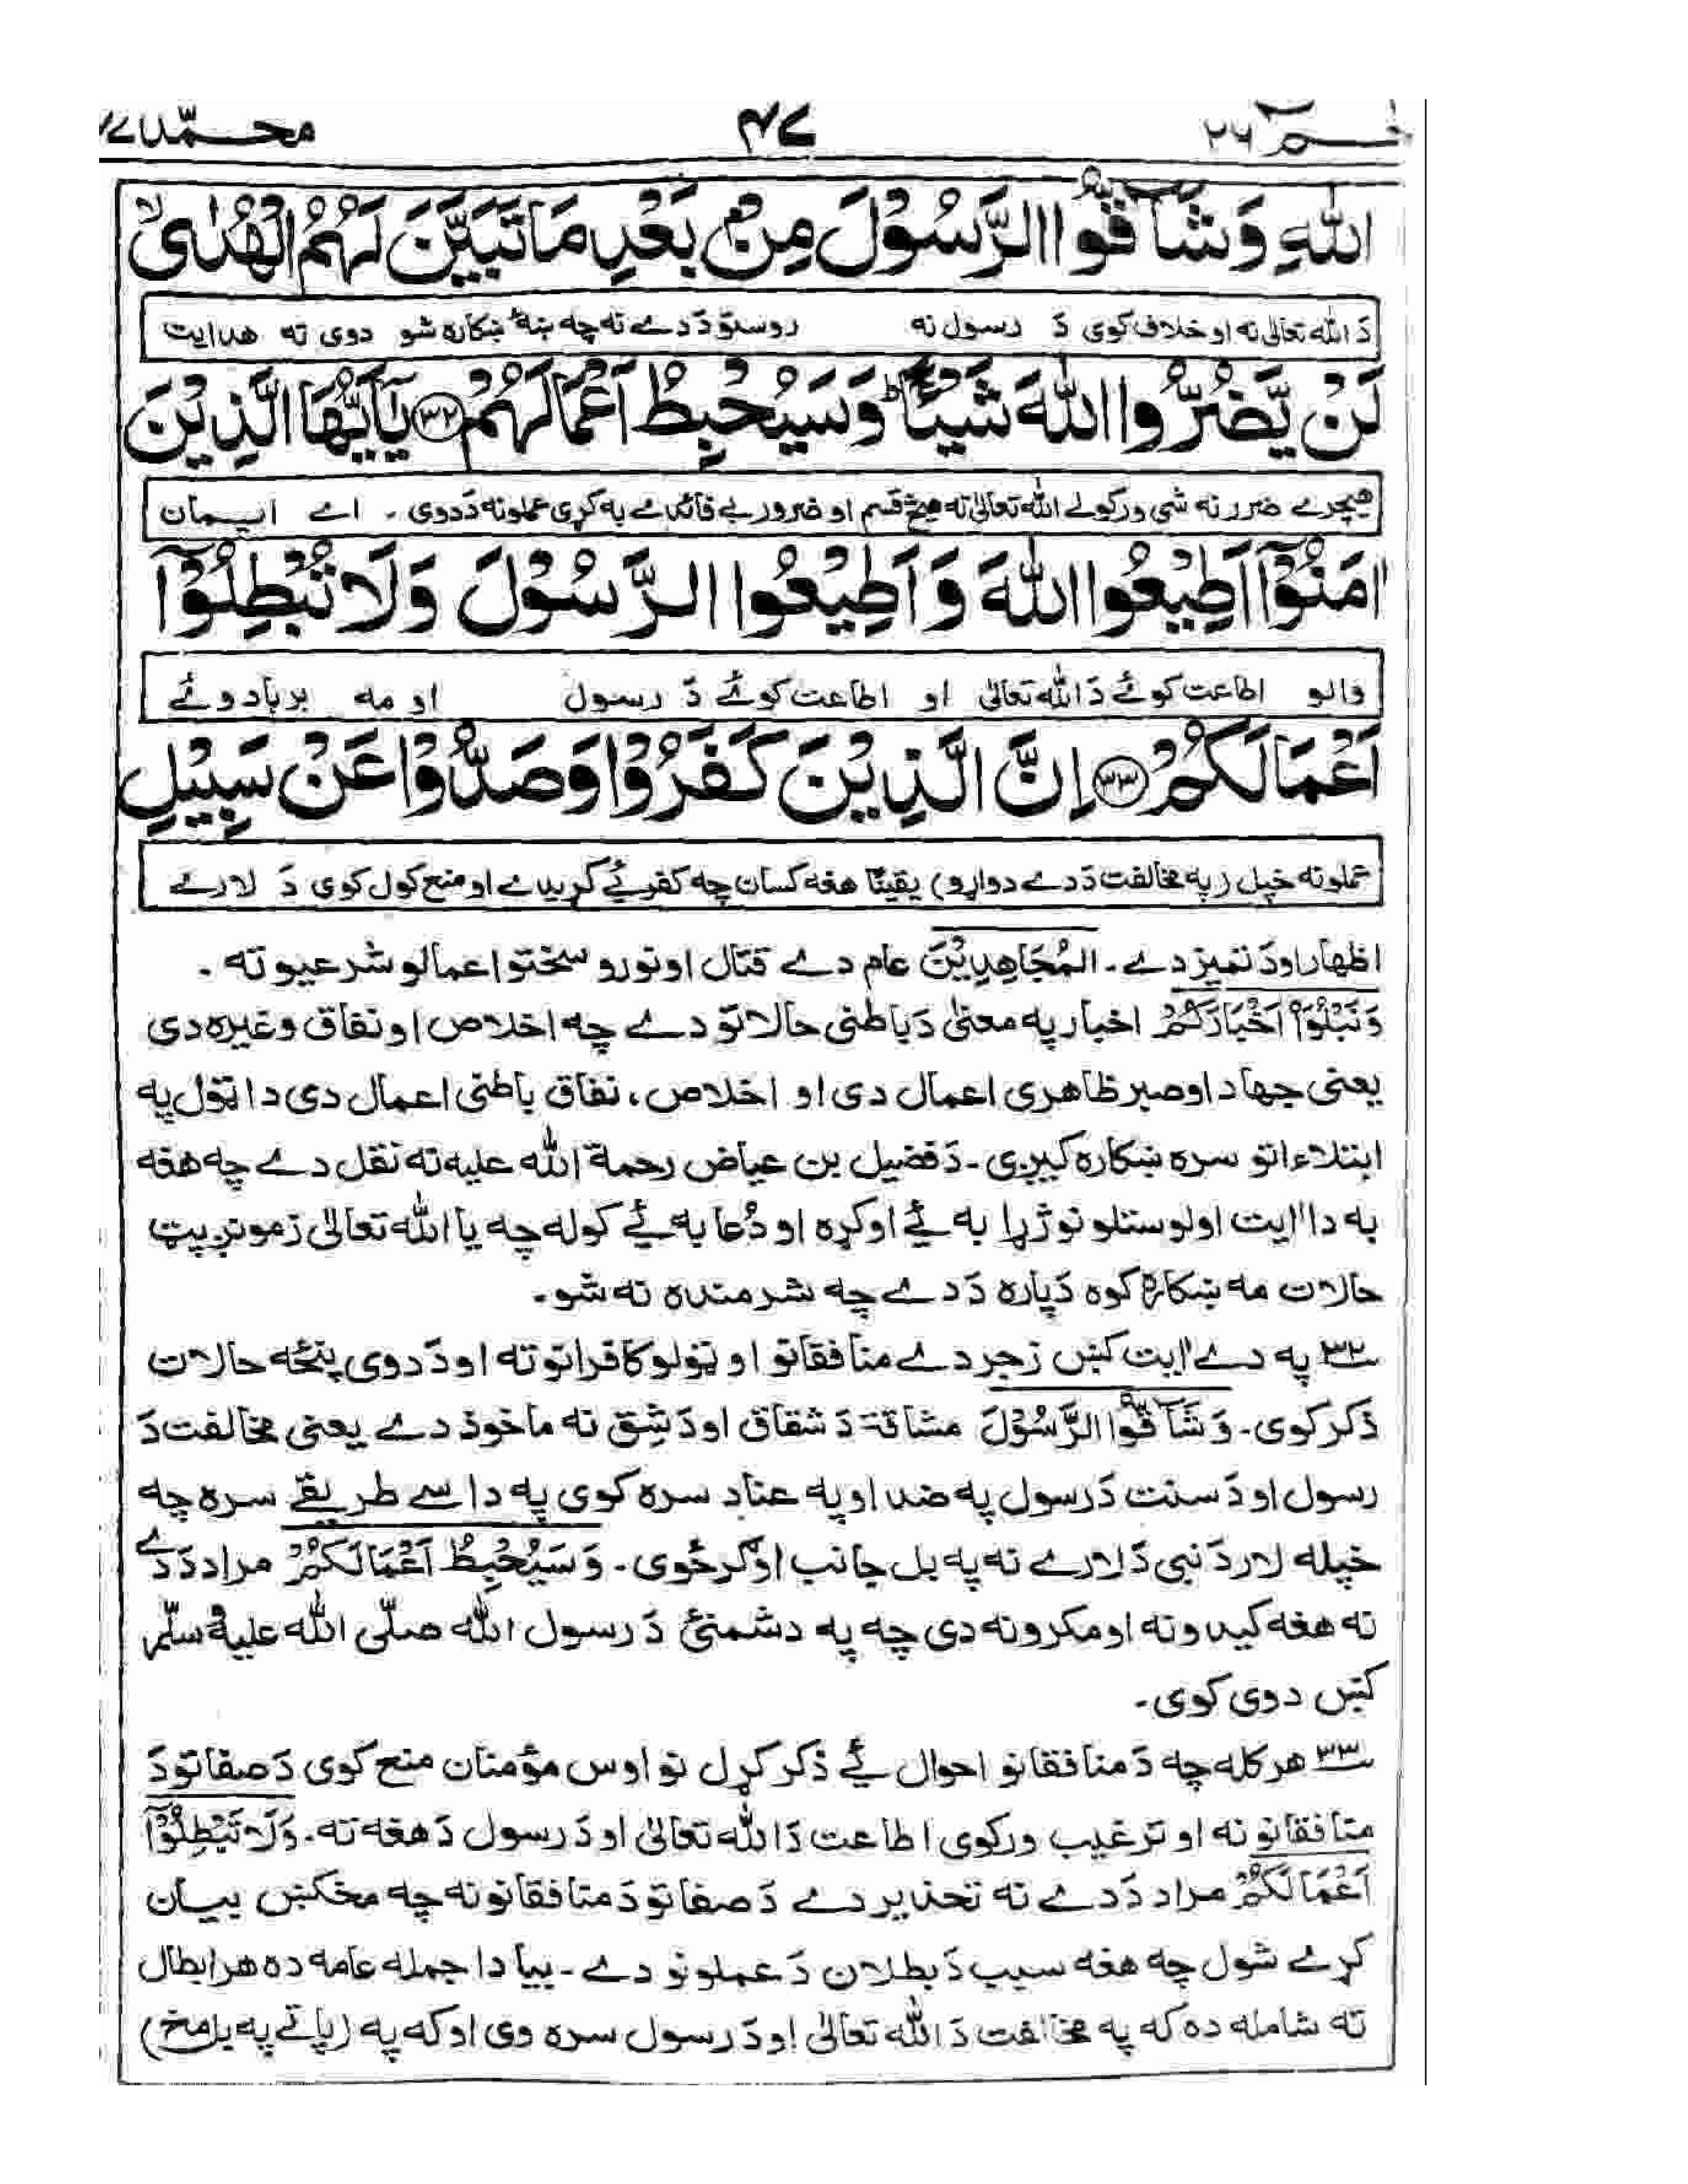 حٰم ٢٦ ٤٧ محمّد ٤٧
اللّٰهِ وَشَآقُّوا الرَّسُوْلَ مِنْۢ بَعْدِ مَا تَبَيَّنَ لَهُمُ الْهُدٰىۙ
دَ الله تعالیٰ نه او خلاف کوی دَ رسول نه روستو دَ دے نه چه ښهٔ ښکاره شو دوی ته هدایت
لَنْ يَّضُرُّوا اللّٰهَ شَيْـًٔاؕ وَسَيُحْبِطُ اَعْمَالَهُمْ ﴿٣٢﴾ يٰۤاَيُّهَا الَّذِيْنَ
هیچرے ضرر نه شی ورکولے الله تعالیٰ ته هیڅ قسم او ضرور بے فائدے به کړی عملونه دَ دوی ۔ اے ایمان
اٰمَنُوْۤا اَطِيْعُوا اللّٰهَ وَ اَطِيْعُوا الرَّسُوْلَ وَلَا تُبْطِلُوْۤا
والو اطاعت کوئے دَ الله تعالیٰ او اطاعت کوئے دَ رسول او مه بربادوئے
اَعْمَالَكُمْ ﴿٣٣﴾ اِنَّ الَّذِيْنَ كَفَرُوْا وَصَدُّوْا عَنْ سَبِيْلِ
عملونه خپل (په مخالفت دَ دے دواړو) یقینًا هغه کسان چه کفر ئے کړیدے او منع کول کوی دَ لارے
اظهار اودَ تمیز دے۔ المُجَاهِدِيْنَ عام دے قتال او نورو سختو اعمالو شرعیو ته ۔
وَنَبْلُوَا۟ اَخْبَارَكُمْ اخبار په معنیٰ دَ باطنی حالاتو دے چه اخلاص او نفاق وغیره دی
یعنی جهاد او صبر ظاهری اعمال دی او اخلاص، نفاق باطنی اعمال دی دا ټول په
ابتلاءاتو سره ښکاره کیږی ۔ دَ فضیل بن عیاض رحمة الله علیه نه نقل دے چه هغه
به دا ایت اولوستلو نو ژړا به ئے اوکړه او دُعا به ئے کوله چه یا الله تعالیٰ زمونږ پټ
حالات مه ښکاره کوه دَپاره دَ دے چه شرمنده نه شو۔
٣٢ په دے ایت کښ زجر دے منافقانو او ټولو کافرانو ته او دَ دوی پنځه حالات
ذکر کوی۔ وَشَآقُّوا الرَّسُوْلَ مشاقة دَ شقاق اودَ شِق نه ماخوذ دے یعنی مخالفت دَ
رسول او دَ سنت دَ رسول په ضد او په عناد سره کوی په داسے طریقے سره چه
خپله لار دَ نبی دَ لارے نه په بل جانب اوګرځوی۔ وَسَيُحْبِطُ اَعْمَالَكُمْ مراد دَ دے
نه هغه کیدونه او مکرونه دی چه په دشمنئ دَ رسول الله صلّی الله علیه وسلّم
کښ دوی کوی۔
٣٣ هرکله چه دَ منافقانو احوال ئے ذکر کړل نو اوس مؤمنان منع کوی دَ صفاتو دَ
منافقانو نه او ترغیب ورکوی اطاعت دَ الله تعالیٰ او دَ رسول دَ هغه ته۔ وَلَا تُبْطِلُوْۤا
اَعْمَالَكُمْ مراد دَ دے نه تحذیر دے دَ صفاتو دَ منافقانو نه چه مخکښ بیان
کړے شول چه هغه سبب دَ بطلان دَ عملونو دے ۔ بیا دا جمله عامه ده هر ابطال
ته شامله ده که په مخالفت دَ الله تعالیٰ او دَ رسول سره وی او که په (پاتے په بل مخ)